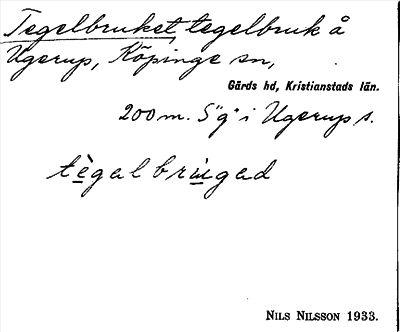 Tegelbruket, tegelbruk å
Ugerup, Köpinge sn,
Gärds hd, Kristianstads län.
200 m. S "g" i Ugerup s.
tègalbrùgad
NILS NILSSON 1933.